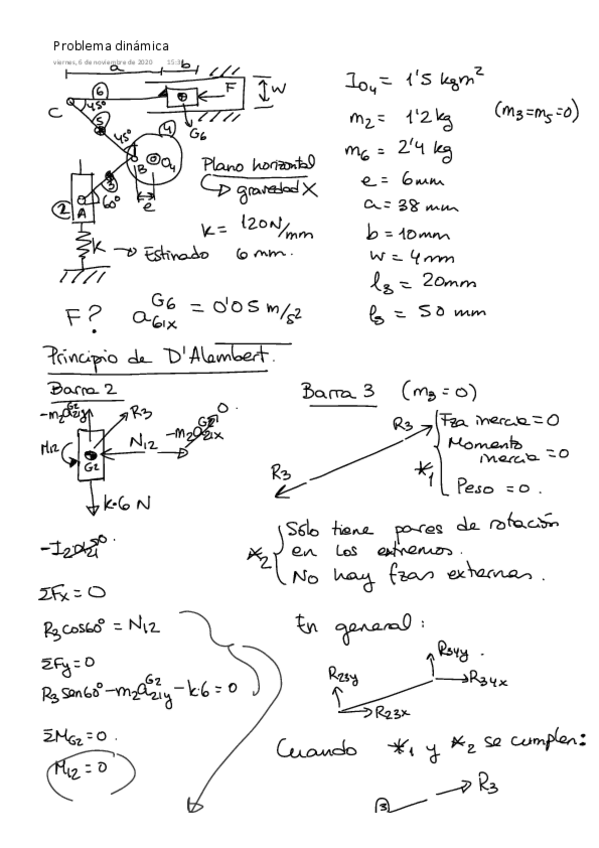 Problema dinámica
viernes, 6 de noviembre de 2020
a
b
6
F
W
C
45°
G6
5
45°
4
B
O4
3
2
A
60°
e
K → Estirado 6 mm.
Plano horizontal
→ gravedad X
K = 120N/mm
I_O4 = 1'5 kgm²
m2 = 1'2 kg (m3=m5=0)
m6 = 2'4 kg
e = 6mm
a = 38 mm
b = 10mm
W = 4mm
l3 = 20mm
l5 = 50 mm
F? a_61x^G6 = 0'05 m/s²
Principio de D'Alambert.
Barra 2
-m2a_21y^G2
R3
N12
-m2a_21x^G2 0.
M12
G2
K·6 N
-I2α21 0.
ΣFx = 0
R3cos60° = N12
ΣFy = 0
R3sen60° - m2a_21y^G2 - K·6 = 0
ΣM_G2 = 0.
M12 = 0
Barra 3 (m3 = 0)
R3
R3
*1
Fza inercia = 0
Momento inercia = 0
Peso = 0.
*2
Sólo tiene pares de rotación
en los extremos.
No hay fzas externas.
En general:
R23y
R23x
R34y
R34x
Cuando *1 y *2 se cumplen:
3
R3